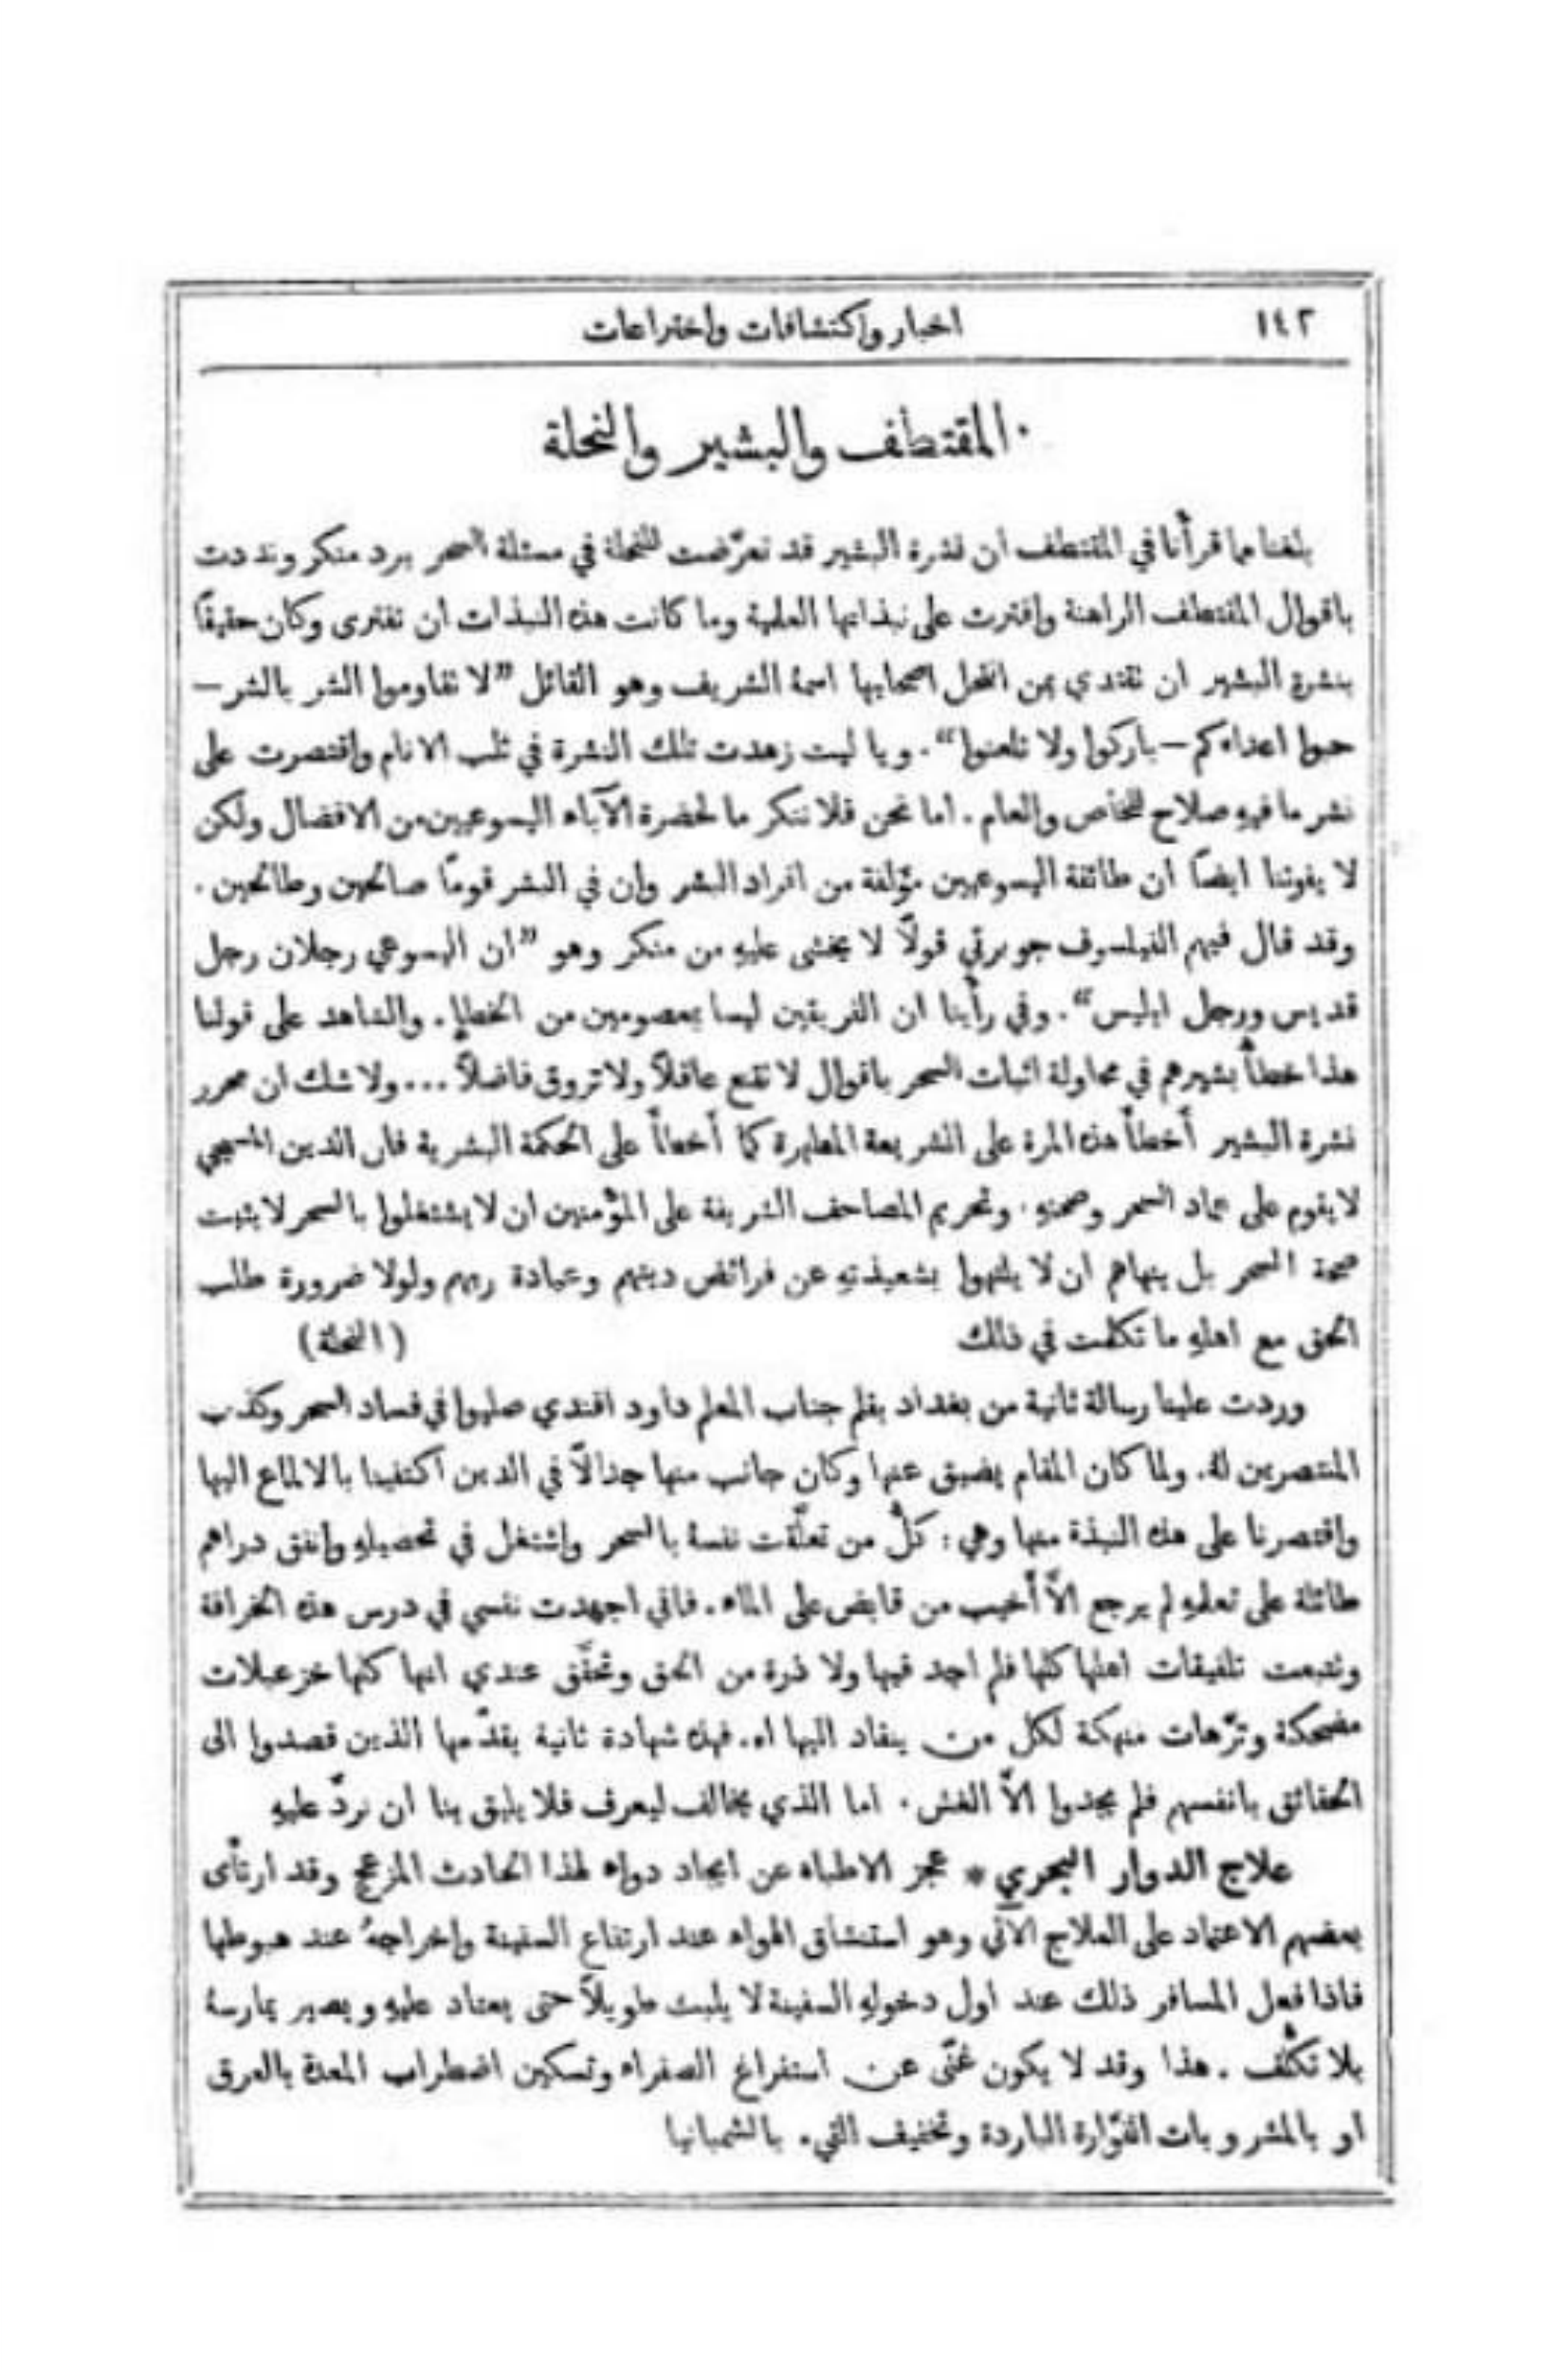 ١٤٢
اخبار واكتشافات واختراعات
المقتطف والبشير والنحلة
بلغنا مما قرأنا في المقتطف ان نشرة البشير قد تعرّضت للنحلة في مسئلة السحر برد منكر ونددت
باقوال المقتطف الراهنة وافترت على نبذاتها العلمية وما كانت هذه النبذات ان تفترى وكان حقيقًا
بنشرة البشير ان تقتدي بمن انتحل اصحابها اسمهُ الشريف وهو القائل ”لا تقاوموا الشر بالشر —
حبوا اعداءكم — باركوا ولا تلعنوا“. ويا ليت زهدت تلك النشرة في ثلب الانام واقتصرت على
نشر ما فيهِ صلاح للخاص والعام. اما نحن فلا ننكر ما لحضرة الآباء اليسوعيين من الافضال ولكن
لا يفوتنا ايضًا ان طائفة اليسوعيين مؤلفة من افراد البشر وان في البشر قومًا صالحين وطالحين.
وقد قال فيهم الفيلسوف جوبرتي قولًا لا يخشى عليهِ من منكر وهو ”ان اليسوعي رجلان رجل
قديس ورجل ابليس“. وفي رأينا ان الفريقين ليسا بمعصومين من الخطإِ. والشاهد على قولنا
هذا خطأُ بشيرهم في محاولة اثبات السحر باقوال لا تقنع عاقلًا ولا تروق فاضلًا ... ولا شك ان محرر
نشرة البشير أَخطأَ هذه المرة على الشريعة المطهرة كما أَخطأَ على الحكمة البشرية فان الدين المسيحي
لا يقوم على عماد السحر وصحتهِ. وتحريم المصاحف الشريفة على المؤْمنين ان لا يشتغلوا بالسحر لا يثبت
صحة السحر بل ينهاهم ان لا يلتهوا بشعبذتهِ عن فرائض دينهم وعبادة ربهم ولولا ضرورة طلب
الحق مع اهلهِ ما تكلمت في ذلك (النحلة)
وردت علينا رسالة ثانية من بغداد بقلم جناب المعلم داود افندي صليوا في فساد السحر وكذب
المنتصرين لهُ. ولما كان المقام يضيق عنها وكان جانب منها جدالًا في الدين اكتفينا بالالماع اليها
واقتصرنا على هذه النبذة منها وهي: كلُّ من تعلّقت نفسهُ بالسحر واشتغل في تحصيلهِ وانفق دراهم
طائلة على تعلمهِ لم يرجع الّا أَخيب من قابض على الماء. فاني اجهدت نفسي في درس هذه الخرافة
وتتبعت تلفيقات اهلها كلها فلم اجد فيها ولا ذرة من الحق وتحقّق عندي انها كلها خزعبلات
مضحكة وترّهات منهكة لكل من ينقاد اليها اه. فهذه شهادة ثانية يقدّمها الذين قصدوا الى
الحقائق بانفسهم فلم يجدوا الّا الغش. اما الذي يخالف ليعرف فلا يليق بنا ان نردّ عليهِ
علاج الدوار البحري * عجز الاطباء عن ايجاد دواء لهذا الحادث المزعج وقد ارتأَى
بعضهم الاعتماد على العلاج الآتي وهو استنشاق الهواء عند ارتفاع السفينة واخراجهُ عند هبوطها
فاذا فعل المسافر ذلك عند اول دخولهِ السفينة لا يلبث طويلًا حتى يعتاد عليهِ ويصير يمارسهُ
بلا تكلُّف. هذا وقد لا يكون غنًى عن استفراغ الصفراء وتسكين اضطراب المعدة بالعرق
او بالمشروبات الفوّارة الباردة وتخفيف القيء بالشمبانيا